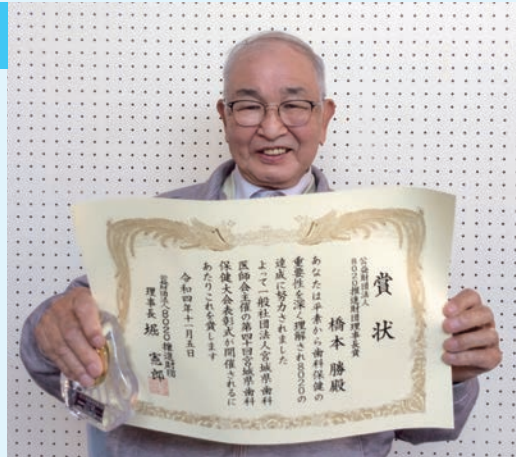 賞状
公益財団法人
8020推進財団理事長賞
橋本 勝殿
あなたは平素から歯科保健の
重要性を深く理解され8020の
達成に努力されました
よって一般社団法人宮城県歯科
医師会主催の第四十回宮城県歯科
保健大会表彰式が開催されるに
あたりこれを賞します
令和四年十一月五日
公益財団法人8020推進財団
理事長 堀 憲郎